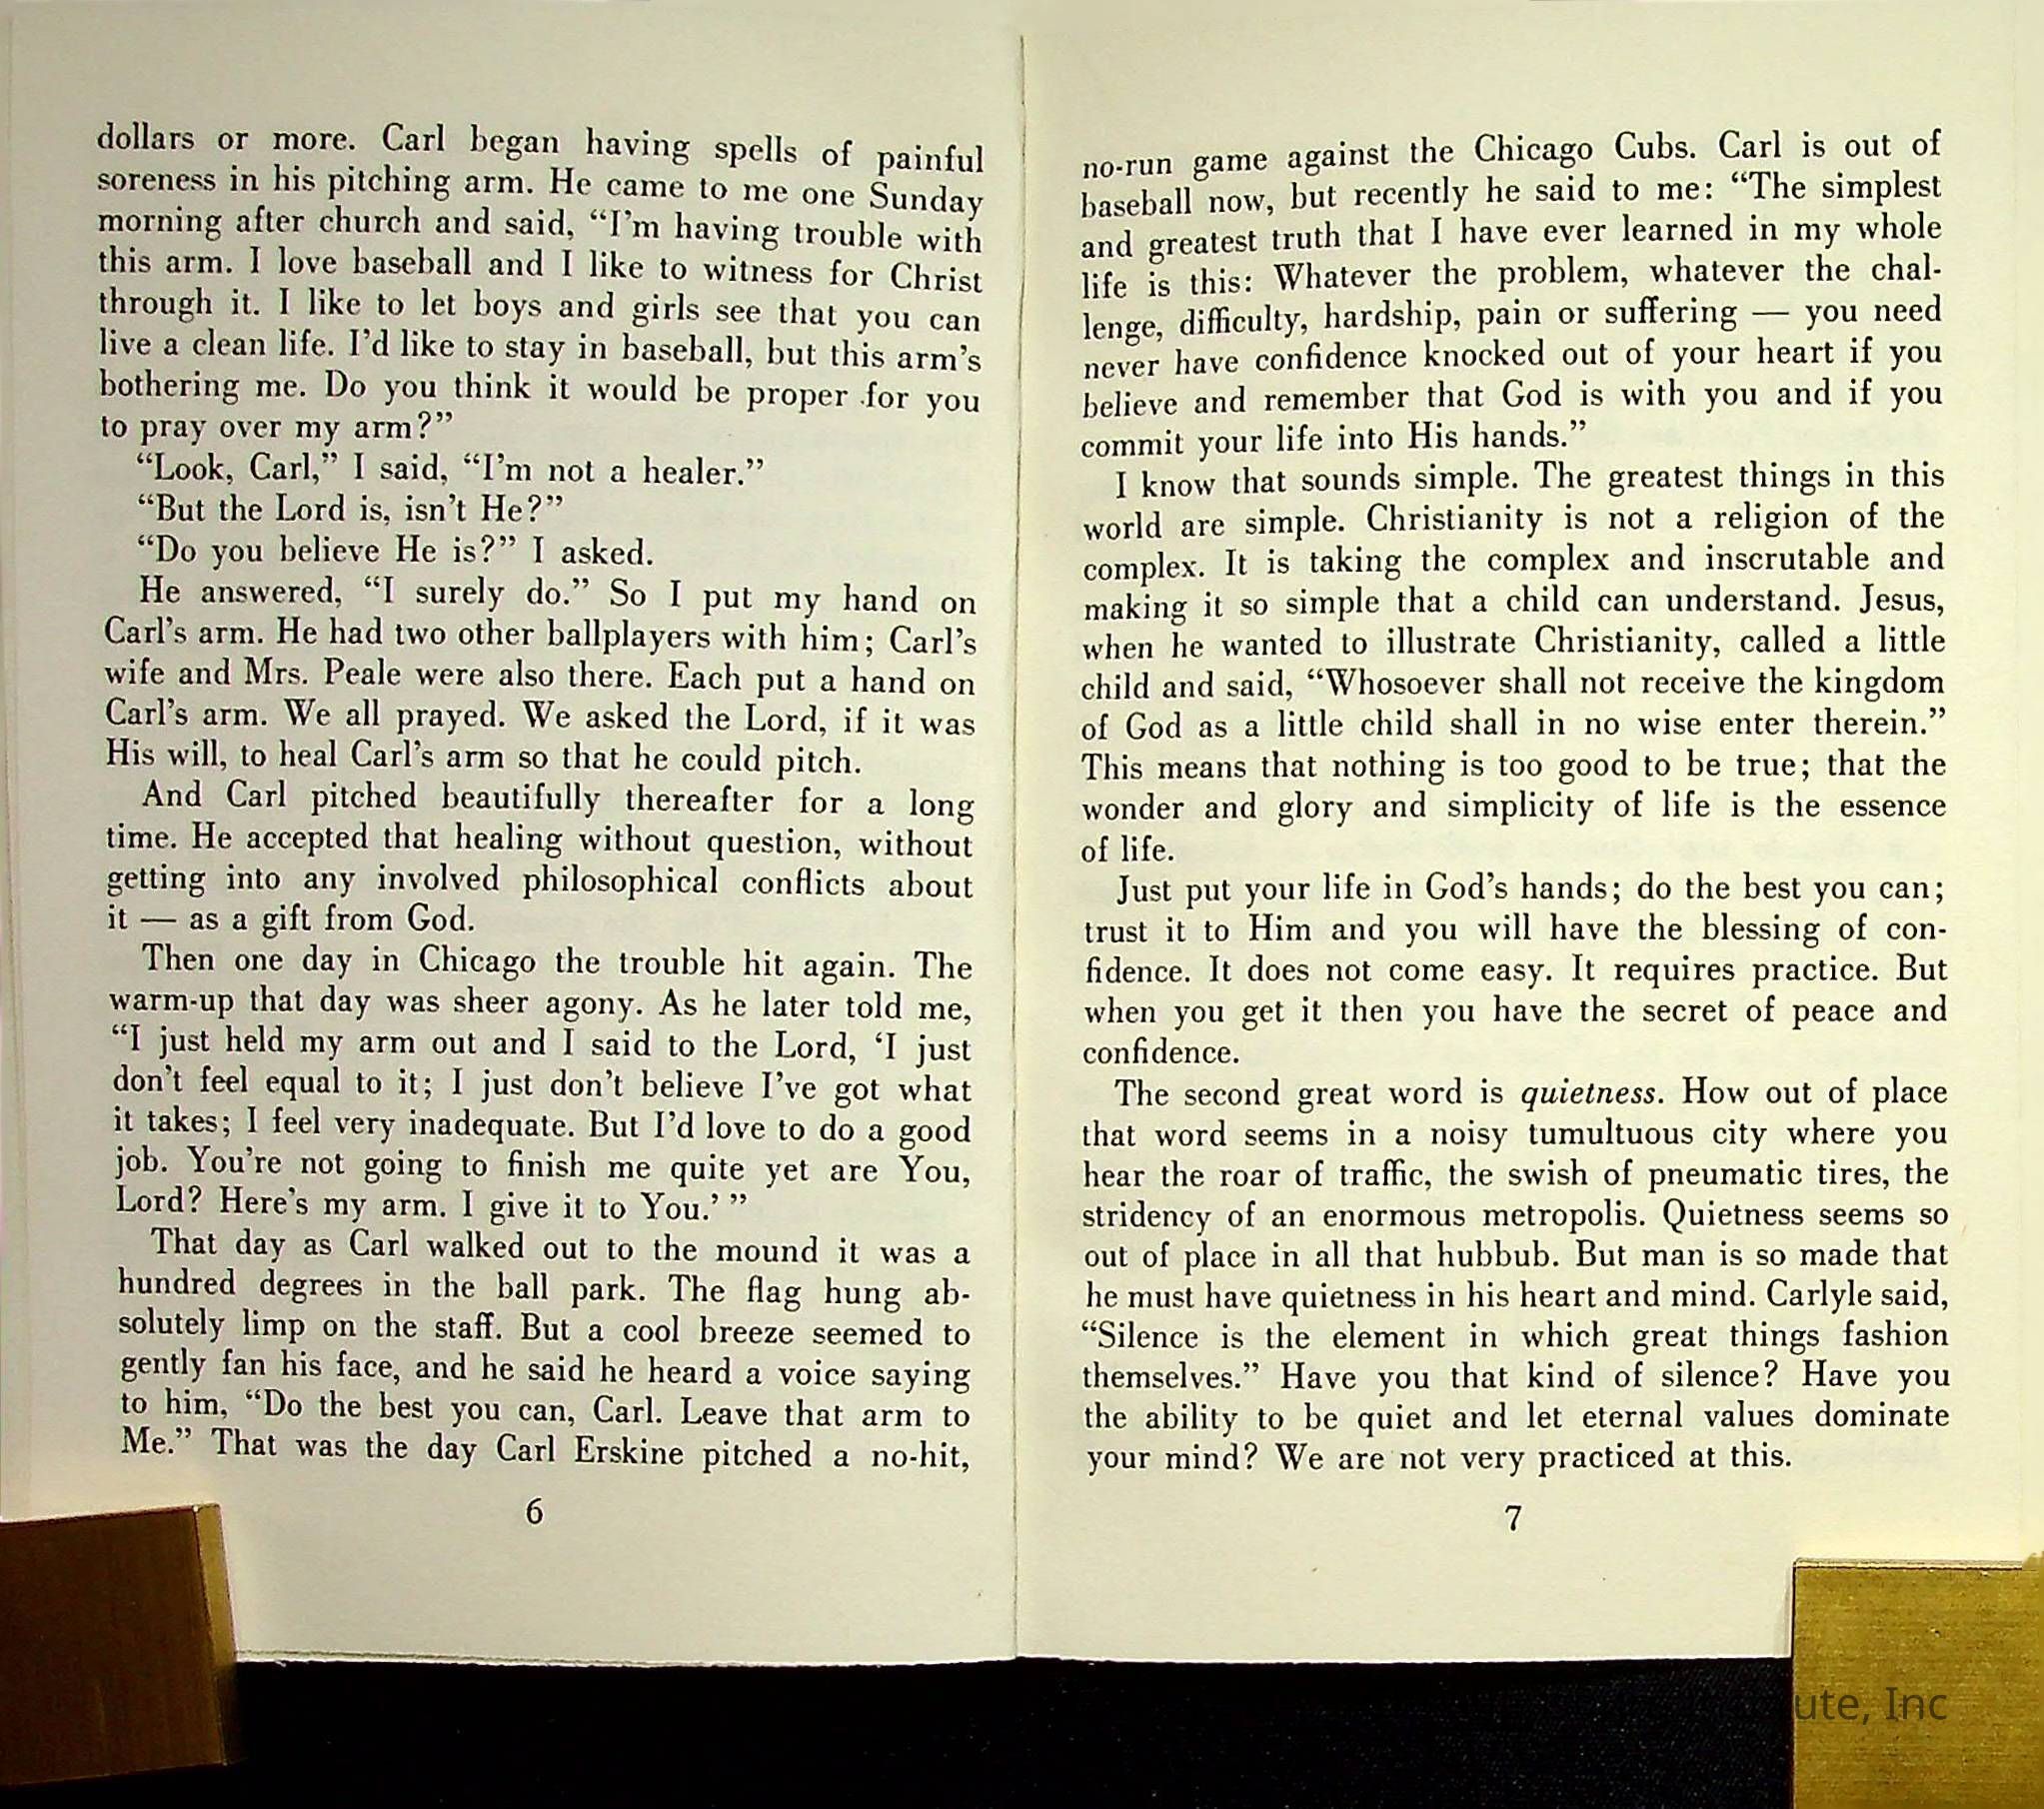 dollars or more. Carl began having spells of painful
soreness in his pitching arm. He came to me one Sunday
morning after church and said, “I’m having trouble with
this arm. I love baseball and I like to witness for Christ
through it. I like to let boys and girls see that you can
live a clean life. I’d like to stay in baseball, but this arm’s
bothering me. Do you think it would be proper for you
to pray over my arm?”
“Look, Carl,” I said, “I’m not a healer.”
“But the Lord is, isn’t He?”
“Do you believe He is?” I asked.
He answered, “I surely do.” So I put my hand on
Carl’s arm. He had two other ballplayers with him; Carl’s
wife and Mrs. Peale were also there. Each put a hand on
Carl’s arm. We all prayed. We asked the Lord, if it was
His will, to heal Carl’s arm so that he could pitch.
And Carl pitched beautifully thereafter for a long
time. He accepted that healing without question, without
getting into any involved philosophical conflicts about
it — as a gift from God.
Then one day in Chicago the trouble hit again. The
warm-up that day was sheer agony. As he later told me,
“I just held my arm out and I said to the Lord, ‘I just
don’t feel equal to it; I just don’t believe I’ve got what
it takes; I feel very inadequate. But I’d love to do a good
job. You’re not going to finish me quite yet are You,
Lord? Here’s my arm. I give it to You.’ ”
That day as Carl walked out to the mound it was a
hundred degrees in the ball park. The flag hung ab-
solutely limp on the staff. But a cool breeze seemed to
gently fan his face, and he said he heard a voice saying
to him, “Do the best you can, Carl. Leave that arm to
Me.” That was the day Carl Erskine pitched a no-hit,
6
no-run game against the Chicago Cubs. Carl is out of
baseball now, but recently he said to me: “The simplest
and greatest truth that I have ever learned in my whole
life is this: Whatever the problem, whatever the chal-
lenge, difficulty, hardship, pain or suffering — you need
never have confidence knocked out of your heart if you
believe and remember that God is with you and if you
commit your life into His hands.”
I know that sounds simple. The greatest things in this
world are simple. Christianity is not a religion of the
complex. It is taking the complex and inscrutable and
making it so simple that a child can understand. Jesus,
when he wanted to illustrate Christianity, called a little
child and said, “Whosoever shall not receive the kingdom
of God as a little child shall in no wise enter therein.”
This means that nothing is too good to be true; that the
wonder and glory and simplicity of life is the essence
of life.
Just put your life in God’s hands; do the best you can;
trust it to Him and you will have the blessing of con-
fidence. It does not come easy. It requires practice. But
when you get it then you have the secret of peace and
confidence.
The second great word is quietness. How out of place
that word seems in a noisy tumultuous city where you
hear the roar of traffic, the swish of pneumatic tires, the
stridency of an enormous metropolis. Quietness seems so
out of place in all that hubbub. But man is so made that
he must have quietness in his heart and mind. Carlyle said,
“Silence is the element in which great things fashion
themselves.” Have you that kind of silence? Have you
the ability to be quiet and let eternal values dominate
your mind? We are not very practiced at this.
7
ute, Inc